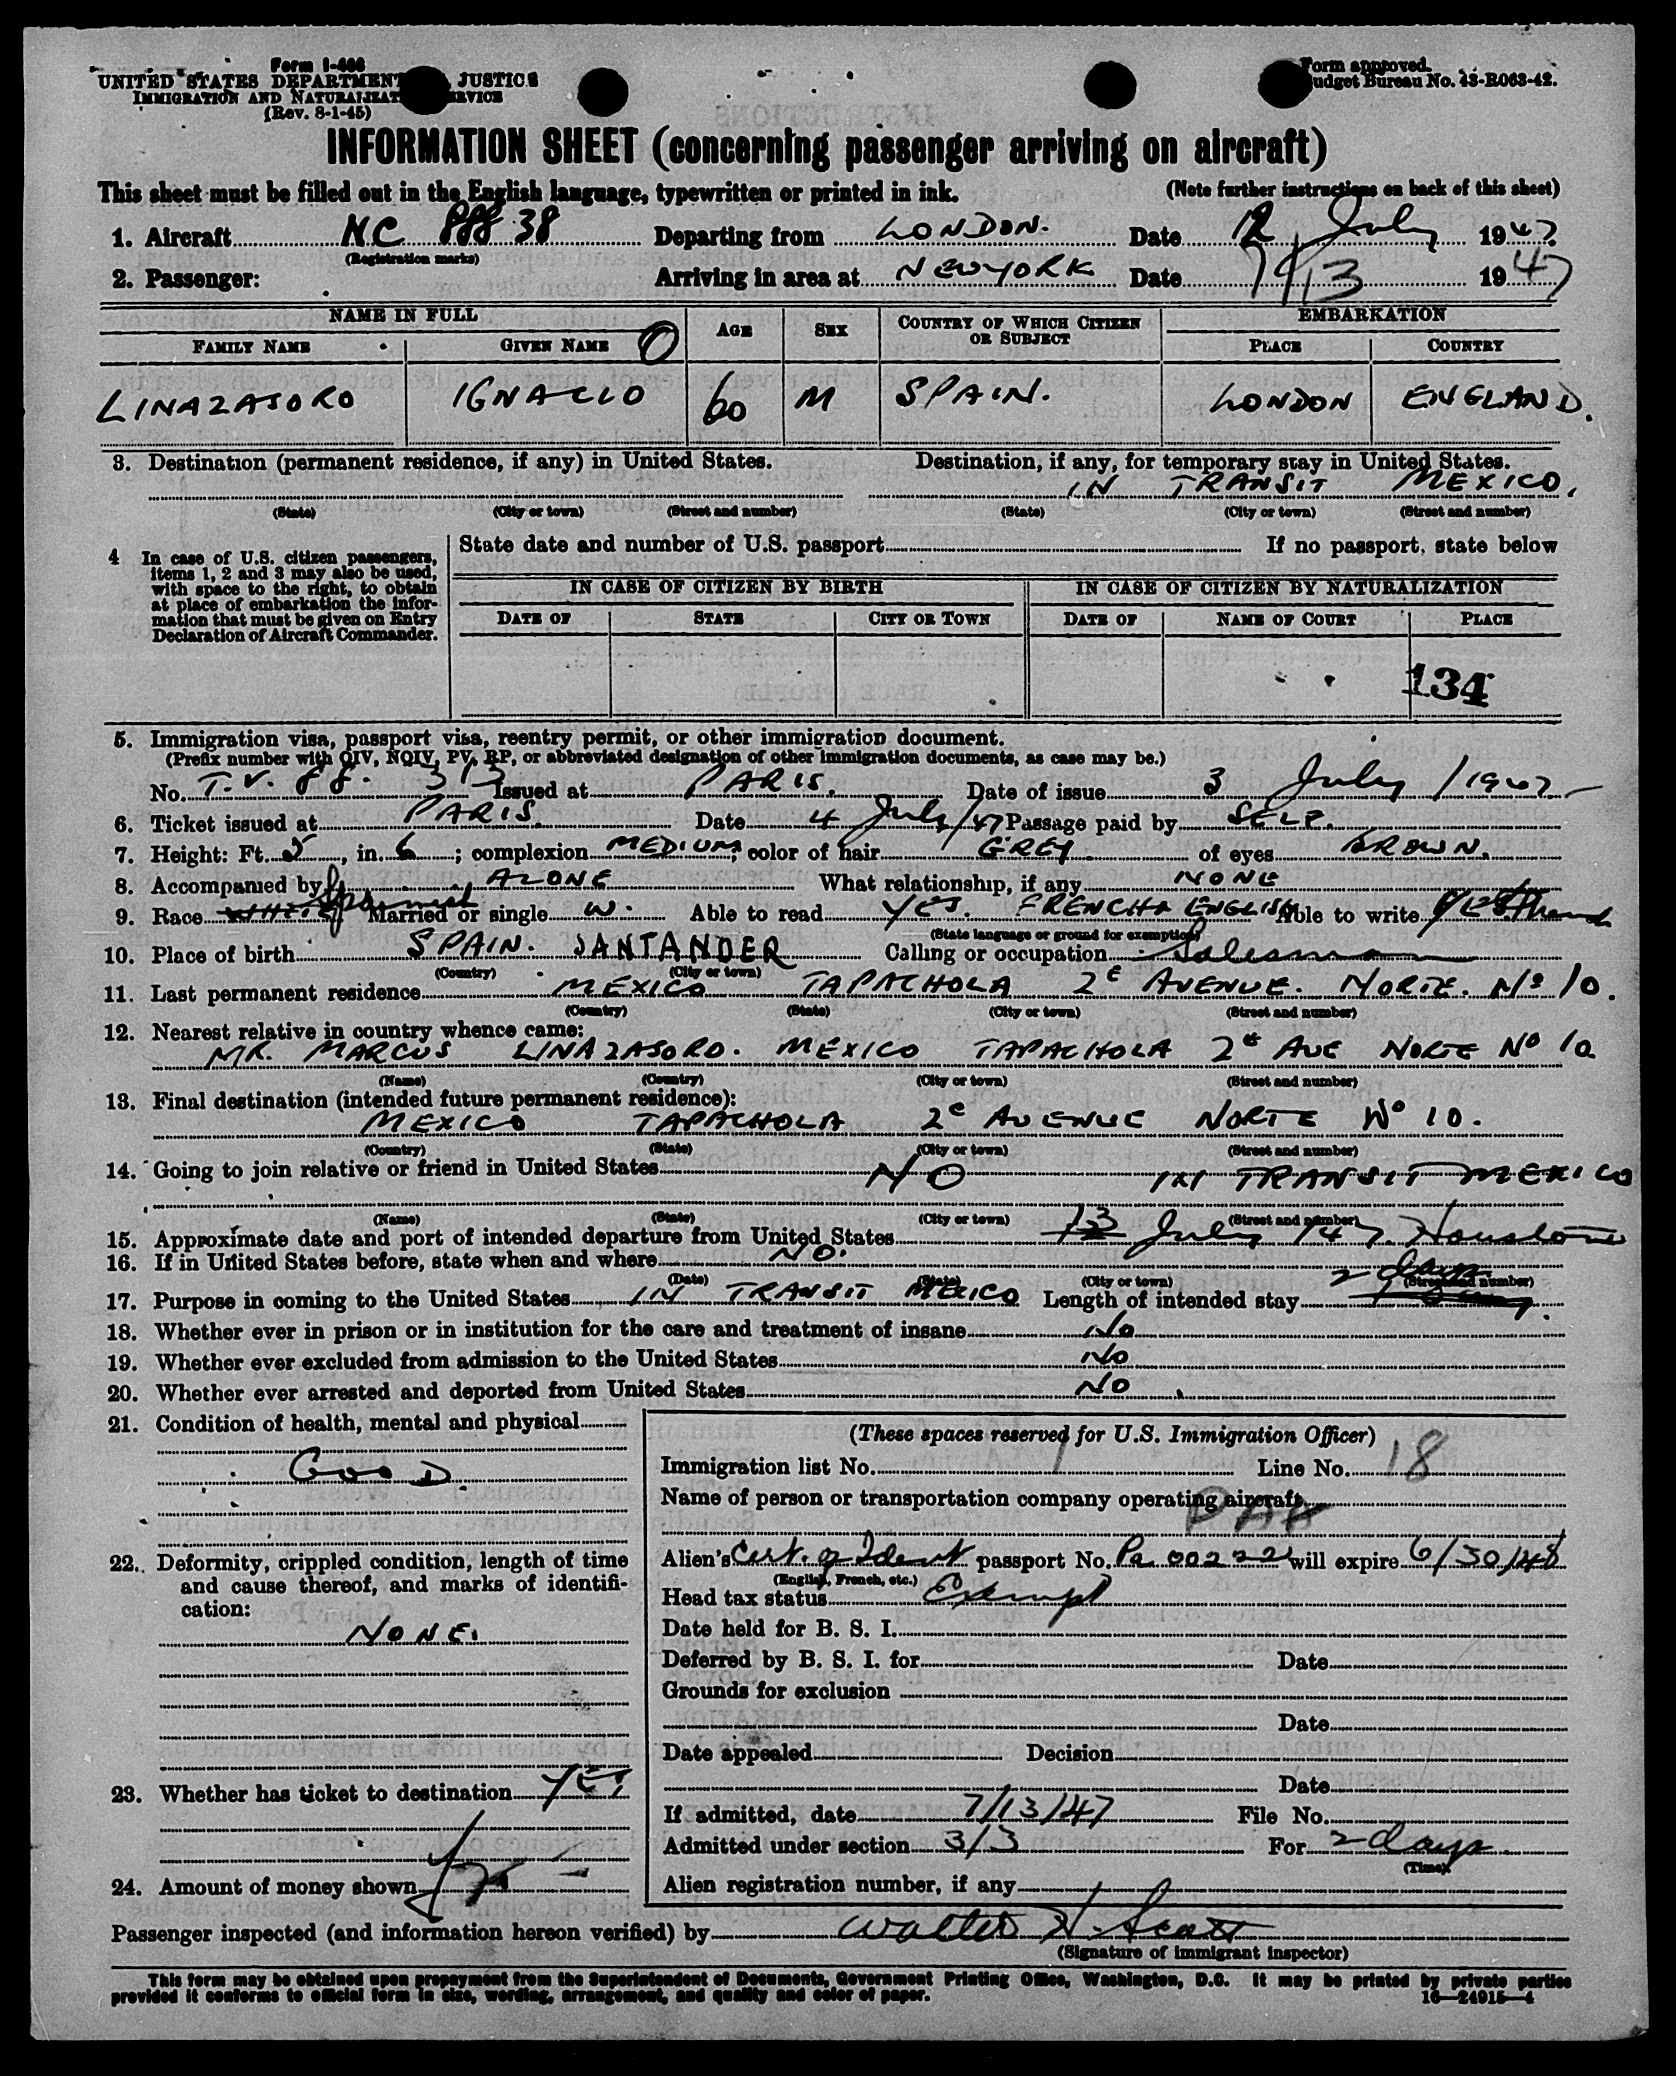 Form I-466
UNITED STATES DEPARTMENT JUSTICE
IMMIGRATION AND NATURALIZAT SERVICE
(Rev. 8-1-45)
Form approved.
Budget Bureau No. 43-R063-42.
INFORMATION SHEET (concerning passenger arriving on aircraft)
This sheet must be filled out in the English language, typewritten or printed in ink. (Note further instructions on back of this sheet)
1. Aircraft NC 88838 Departing from LONDON. Date 12 July 1947
(Registration marks)
2. Passenger: Arriving in area at NEWYORK Date 7/13 1947
NAME IN FULL AGE SEX COUNTRY OF WHICH CITIZEN OR SUBJECT EMBARKATION
FAMILY NAME GIVEN NAME PLACE COUNTRY
LINAZASORO IGNACIO 60 M SPAIN. LONDON ENGLAND.
3. Destination (permanent residence, if any) in United States. Destination, if any, for temporary stay in United States.
IN TRANSIT MEXICO.
(State) (City or town) (Street and number) (State) (City or town) (Street and number)
4 In case of U.S. citizen passengers, items 1, 2 and 3 may also be used, with space to the right, to obtain at place of embarkation the information that must be given on Entry Declaration of Aircraft Commander.
State date and number of U.S. passport If no passport, state below
IN CASE OF CITIZEN BY BIRTH IN CASE OF CITIZEN BY NATURALIZATION
DATE OF STATE CITY OR TOWN DATE OF NAME OF COURT PLACE
134
5. Immigration visa, passport visa, reentry permit, or other immigration document.
(Prefix number with QIV, NQIV, PV, RP, or abbreviated designation of other immigration documents, as case may be.)
No. T.V. 88. 313 Issued at PARIS. Date of issue 3 July / 1947
6. Ticket issued at PARIS. Date 4 July/47 Passage paid by SELF.
7. Height: Ft. 5, in. 6; complexion MEDIUM; color of hair GREY. of eyes BROWN.
8. Accompanied by ALONE What relationship, if any NONE
9. Race WHITE Spanish Married or single W. Able to read YES. FRENCH & ENGLISH Able to write YES
(State language or ground for exemption)
10. Place of birth SPAIN. SANTANDER Calling or occupation Salesman
(Country) (City or town)
11. Last permanent residence MEXICO TAPACHOLA 2e AVENUE. NORTE. No 10.
(Country) (State) (City or town) (Street and number)
12. Nearest relative in country whence came:
MR. MARCUS LINAZASORO. MEXICO TAPACHOLA 2e AVE NORTE No 10
(Name) (Country) (City or town) (Street and number)
13. Final destination (intended future permanent residence):
MEXICO TAPACHOLA 2e AVENUE NORTE No 10.
(Country) (State) (City or town) (Street and number)
14. Going to join relative or friend in United States NO IN TRANSIT MEXICO
(Name) (State) (City or town) (Street and number)
15. Approximate date and port of intended departure from United States 13 July 147. Houston
16. If in United States before, state when and where NO.
(Date) (State) (City or town) (Street and number)
17. Purpose in coming to the United States IN TRANSIT MEXICO Length of intended stay 2 days
18. Whether ever in prison or in institution for the care and treatment of insane No
19. Whether ever excluded from admission to the United States No
20. Whether ever arrested and deported from United States NO
21. Condition of health, mental and physical
GOOD
22. Deformity, crippled condition, length of time and cause thereof, and marks of identification:
NONE.
23. Whether has ticket to destination YES
24. Amount of money shown
(These spaces reserved for U.S. Immigration Officer)
Immigration list No. 1 Line No. 18
Name of person or transportation company operating aircraft
PAA
Alien's Cert. of Ident passport No. Pa 00222 will expire 6/30/48
(English, French, etc.)
Head tax status Exempt
Date held for B. S. I.
Deferred by B. S. I. for Date
Grounds for exclusion
Date
Date appealed Decision
Date
If admitted, date 7/13/47 File No.
Admitted under section 3/3 For 2 days
(Time)
Alien registration number, if any
Passenger inspected (and information hereon verified) by Walter H. Scott
(Signature of immigrant inspector)
This form may be obtained upon prepayment from the Superintendent of Documents, Government Printing Office, Washington, D.C. It may be printed by private parties
provided it conforms to official form in size, wording, arrangement, and quality and color of paper.
16—24915-4